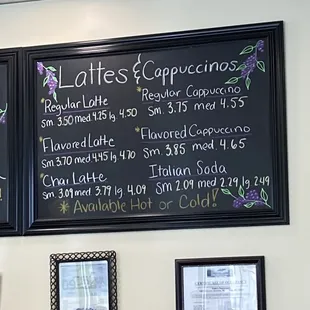 Lattes & Cappuccinos
*Regular Latte
Sm. 3.50 med 4.25 lg. 4.50
*Regular Cappuccino
Sm. 3.75 med 4.55
*Flavored Latte
Sm. 3.70 med 4.45 lg 4.70
*Flavored Cappuccino
Sm. 3.85 med. 4.65
*Chai Latte
Sm 3.09 med 3.79 lg. 4.09
Italian Soda
Sm 2.09 med 2.29 lg 2.49
*Available Hot or Cold!